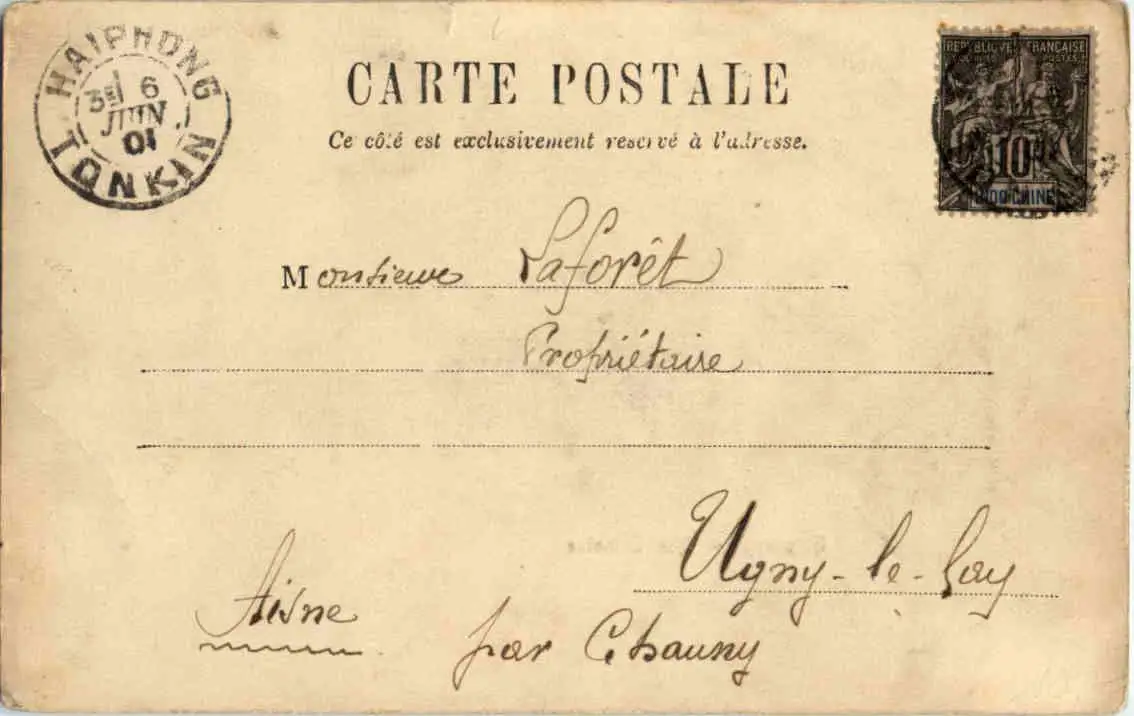 HAIPHONG
3E 6
JUIN
01
TONKIN
CARTE POSTALE
Ce côté est exclusivement reservé à l'adresse.
REPUBLIQUE FRANÇAISE
COLONIES POSTES
10
INDO-CHINE
Monsieur Laforêt
Propriétaire
Ugny-le-Gay
par Chauny
Aisne